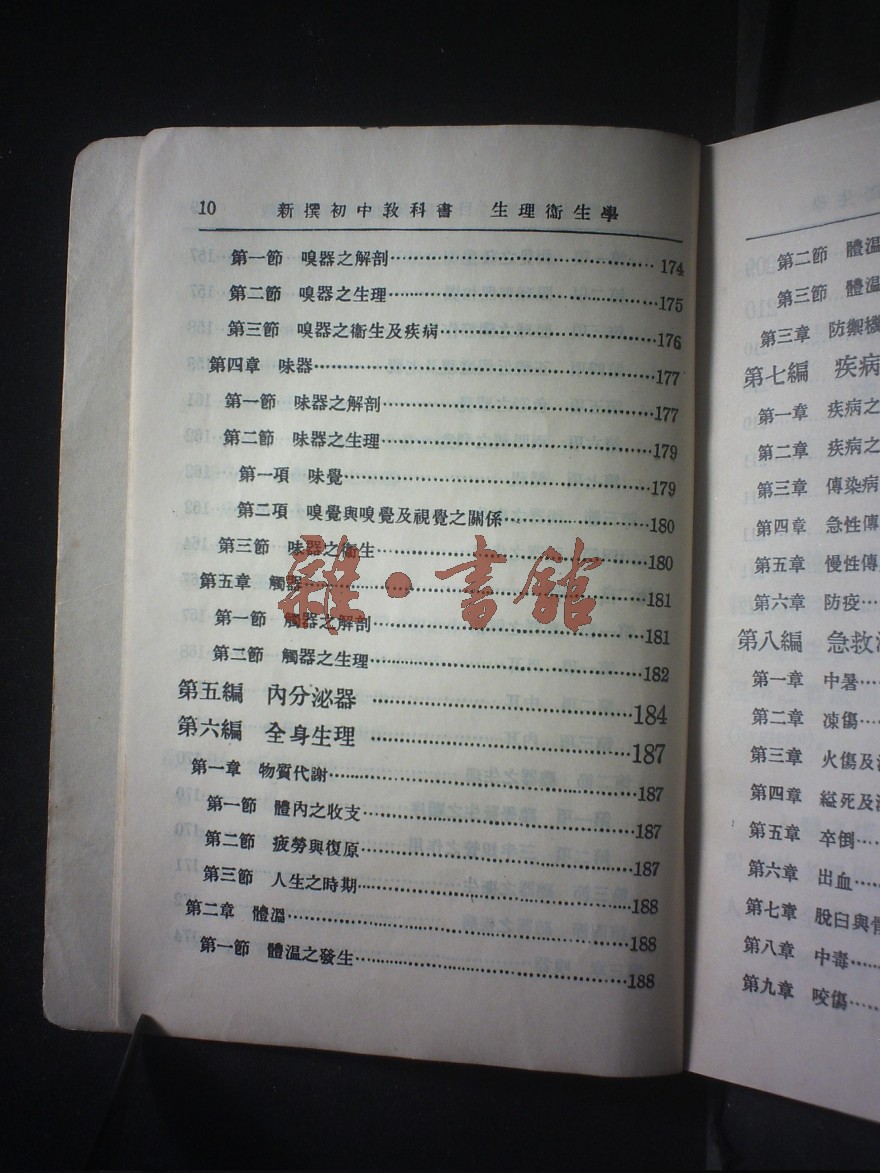 10 新撰初中教科書 生理衞生學
第一節 嗅器之解剖……174
第二節 嗅器之生理……175
第三節 嗅器之衞生及疾病……176
第四章 味器……177
第一節 味器之解剖……177
第二節 味器之生理……179
第一項 味覺……179
第二項 嗅覺與嗅覺及視覺之關係……180
第三節 味器之衞生……180
第五章 觸器……181
第一節 觸器之解剖……181
第二節 觸器之生理……182
第五編 內分泌器……184
第六編 全身生理……187
第一章 物質代謝……187
第一節 體內之收支……187
第二節 疲勞與復原……187
第三節 人生之時期……188
第二章 體溫……188
第一節 體温之發生……188
雜·書館
第二節 體溫
第三節 體溫
第三章 防禦機
第七編 疾病
第一章 疾病之
第二章 疾病之
第三章 傳染病
第四章 急性傳
第五章 慢性傳
第六章 防疫…
第八編 急救
第一章 中暑…
第二章 凍傷…
第三章 火傷及
第四章 縊死及
第五章 卒倒…
第六章 出血…
第七章 脫臼與
第八章 中毒…
第九章 咬傷…